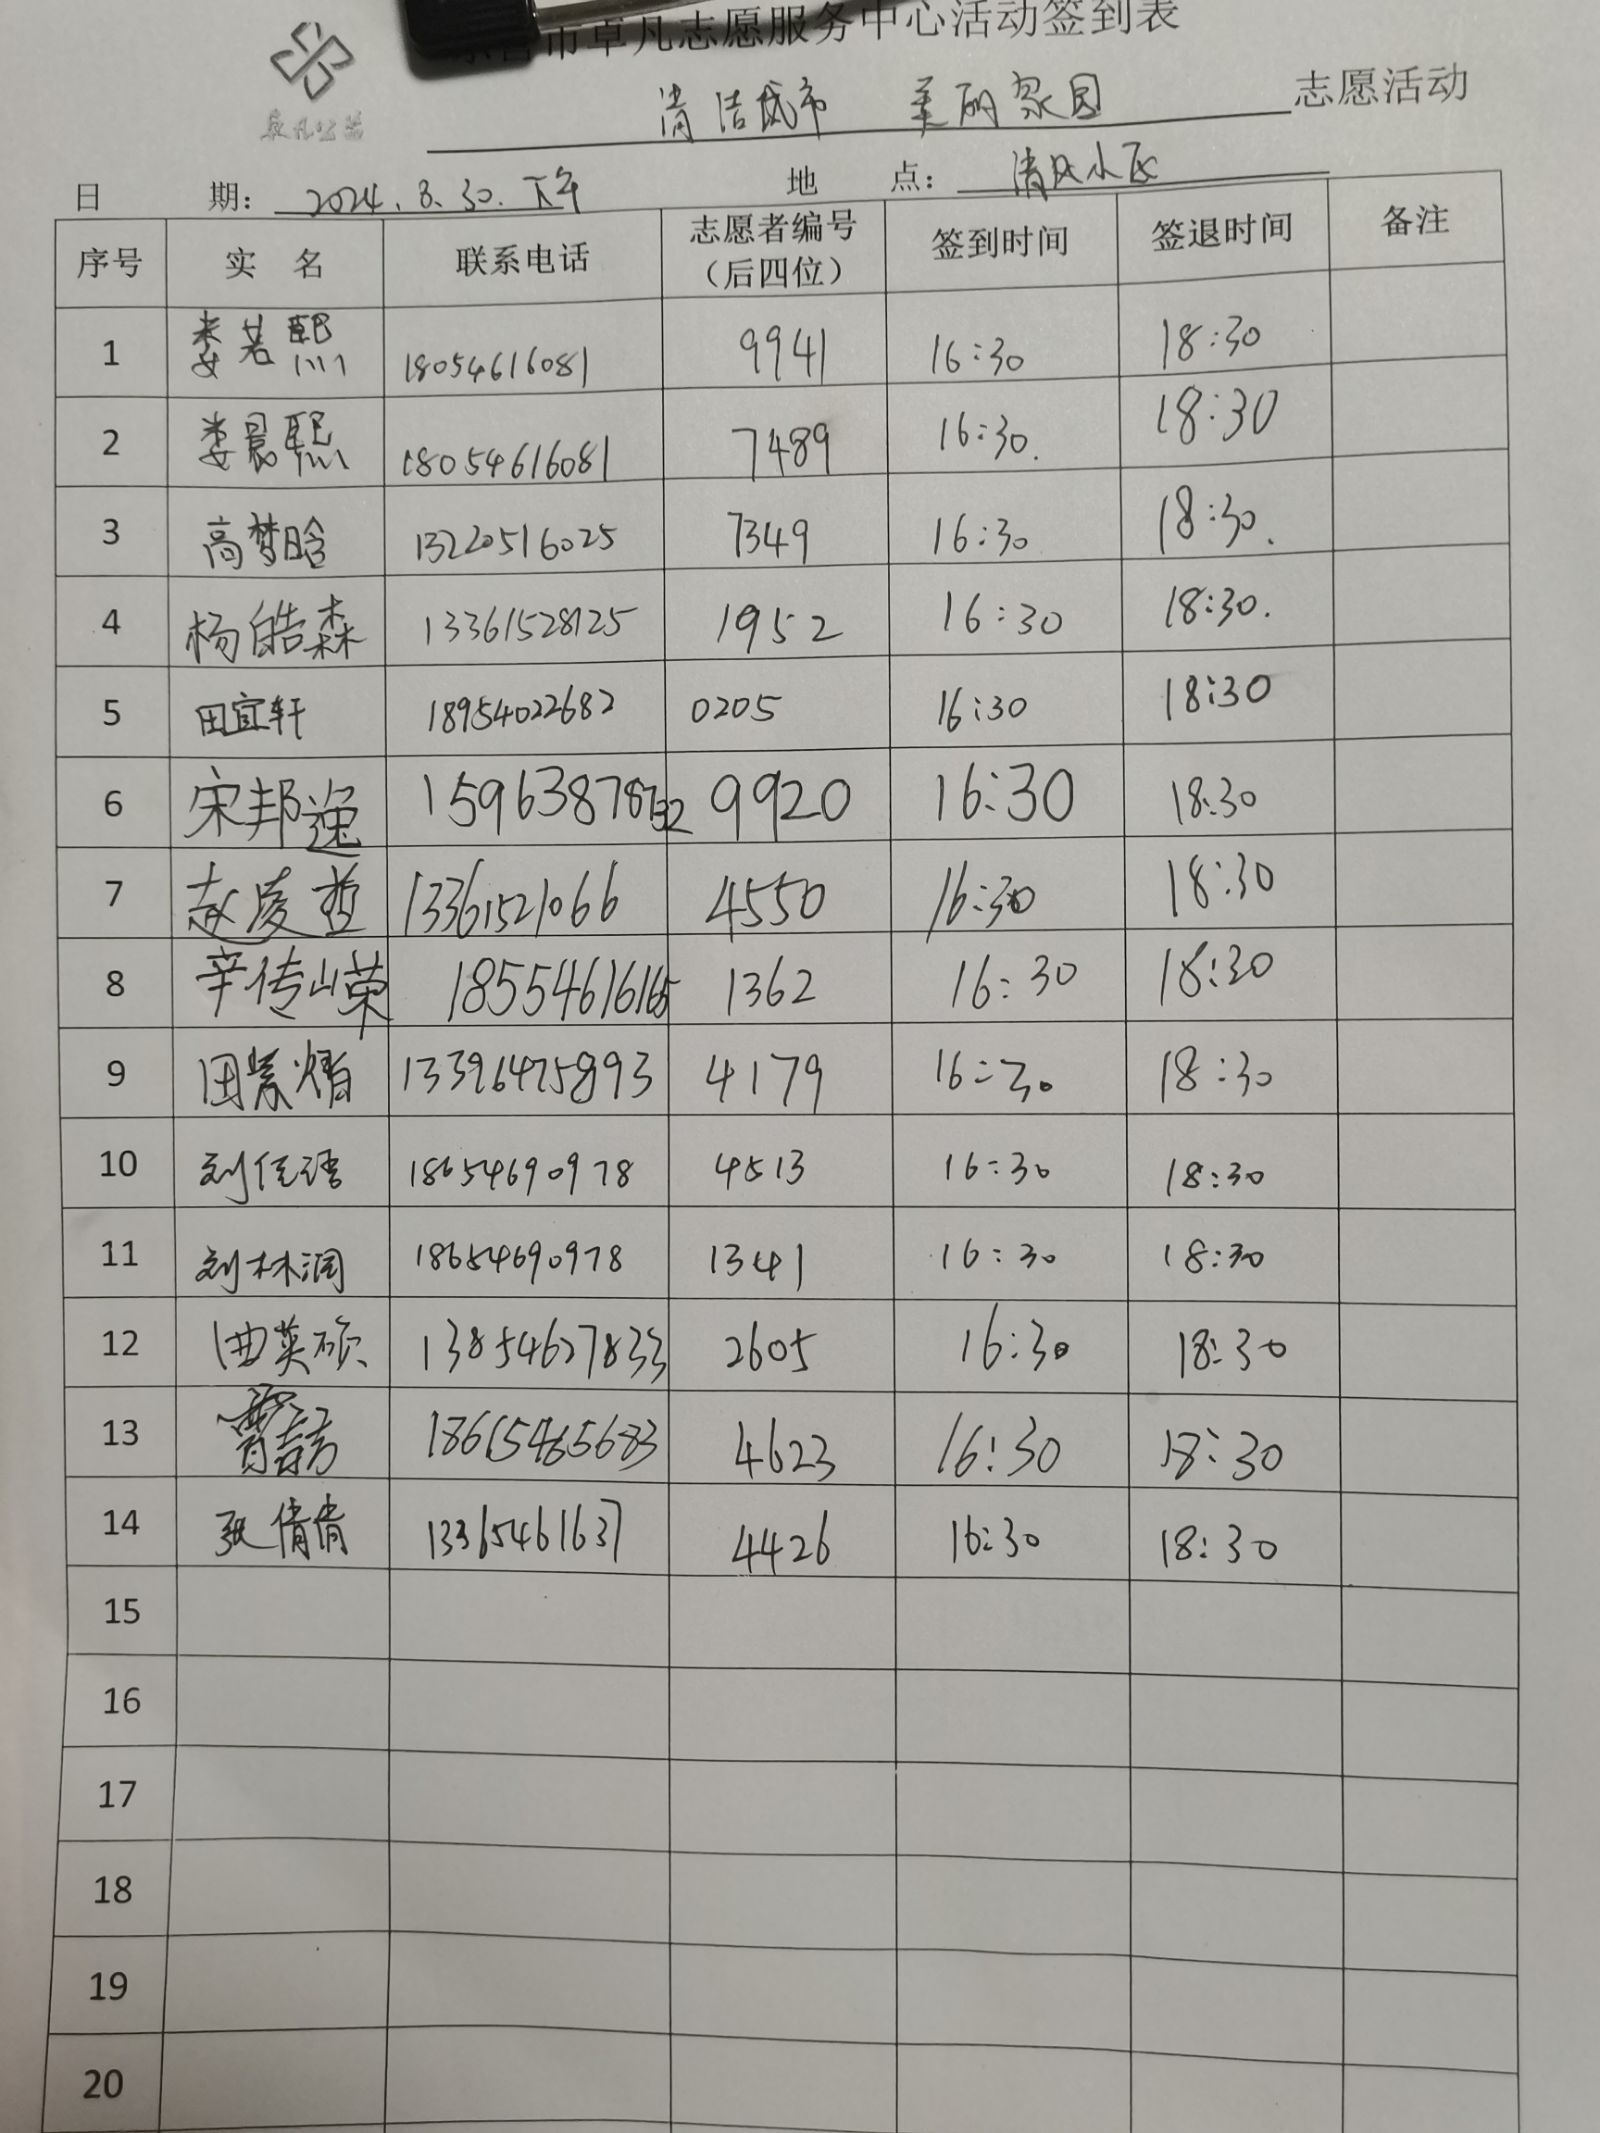 市卓凡志愿服务中心活动签到表
卓凡公益
清洁城市 美丽家园 志愿活动
日 期： 2024.8.30.下午 地 点： 清风小区
序号 实 名 联系电话 志愿者编号（后四位） 签到时间 签退时间 备注
1 娄若熙 18054616081 9941 16:30 18:30
2 娄晨熙 18054616081 7489 16:30. 18:30
3 高梦晗 13220516025 7349 16:30 18:30.
4 杨皓森 13361528125 1952 16:30 18:30.
5 田宜轩 18954022682 0205 16:30 18:30
6 宋邦逸 15963878732 9920 16:30 18:30
7 赵凌哲 13361521066 4550 16:30 18:30
8 辛传嵘 18554616165 1362 16:30 18:30
9 田紫熠 13396475893 4179 16:30 18:30
10 刘佳语 18654690978 4513 16:30 18:30
11 刘林润 18654690978 1341 16:30 18:30
12 曲英硕 13854627833 2605 16:30 18:30
13 18615465683 4623 16:30 18:30
14 张倩倩 13365461637 4426 16:30 18:30
15
16
17
18
19
20